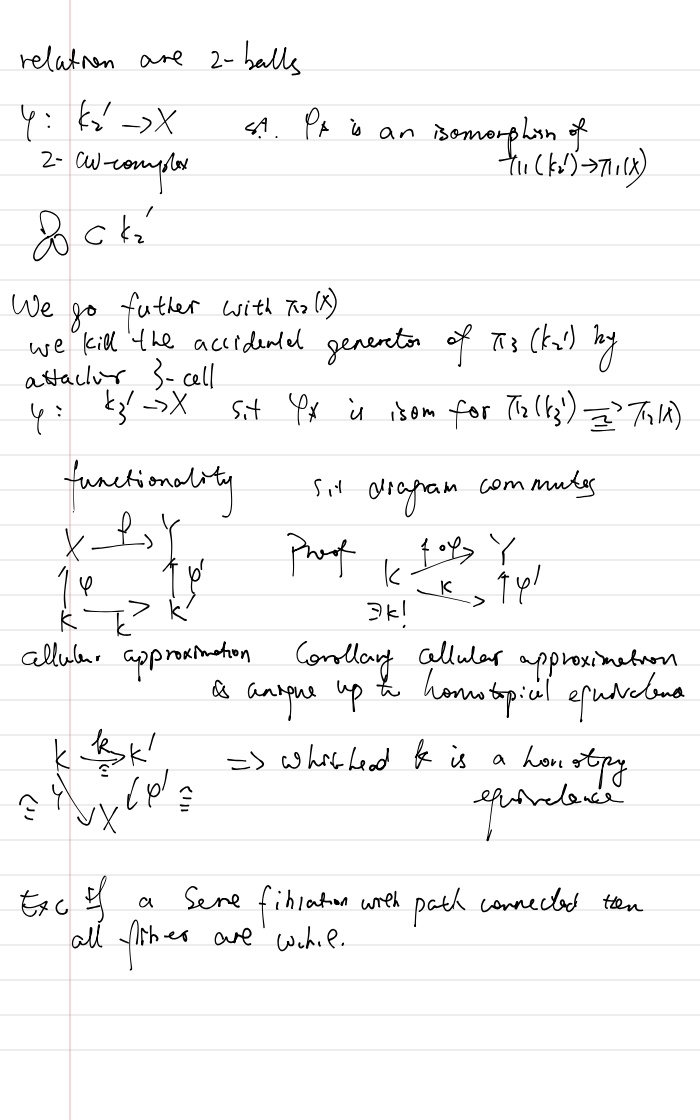 relation are 2-balls
φ: K₂' → X s.t. φ* is an isomorphism of
2-CW-complex π₁(K₂') → π₁(X)
⊂ K₂'
We go futher with π₂(X)
we kill the accidental generator of π₃(K₂') by
attachir 3-cell
φ: K₃' → X s.t φ* is isom for π₂(K₃') ⥲ π₂(X)
functionality s.t diagram commutes
X —f→ Y Proof K —f∘φ→ Y
↑φ ↑φ' —k→ ↑φ'
K —k→ K' ∃k!
cellular approximation Corollary cellular approximation
is unique up to homotopical equivalence
K —k→ K' => Whitehead k is a homotpy
≅ φ X φ' ≅ equivalence
Exc If a Serre fibration with path connected then
all fibres are w.h.e.